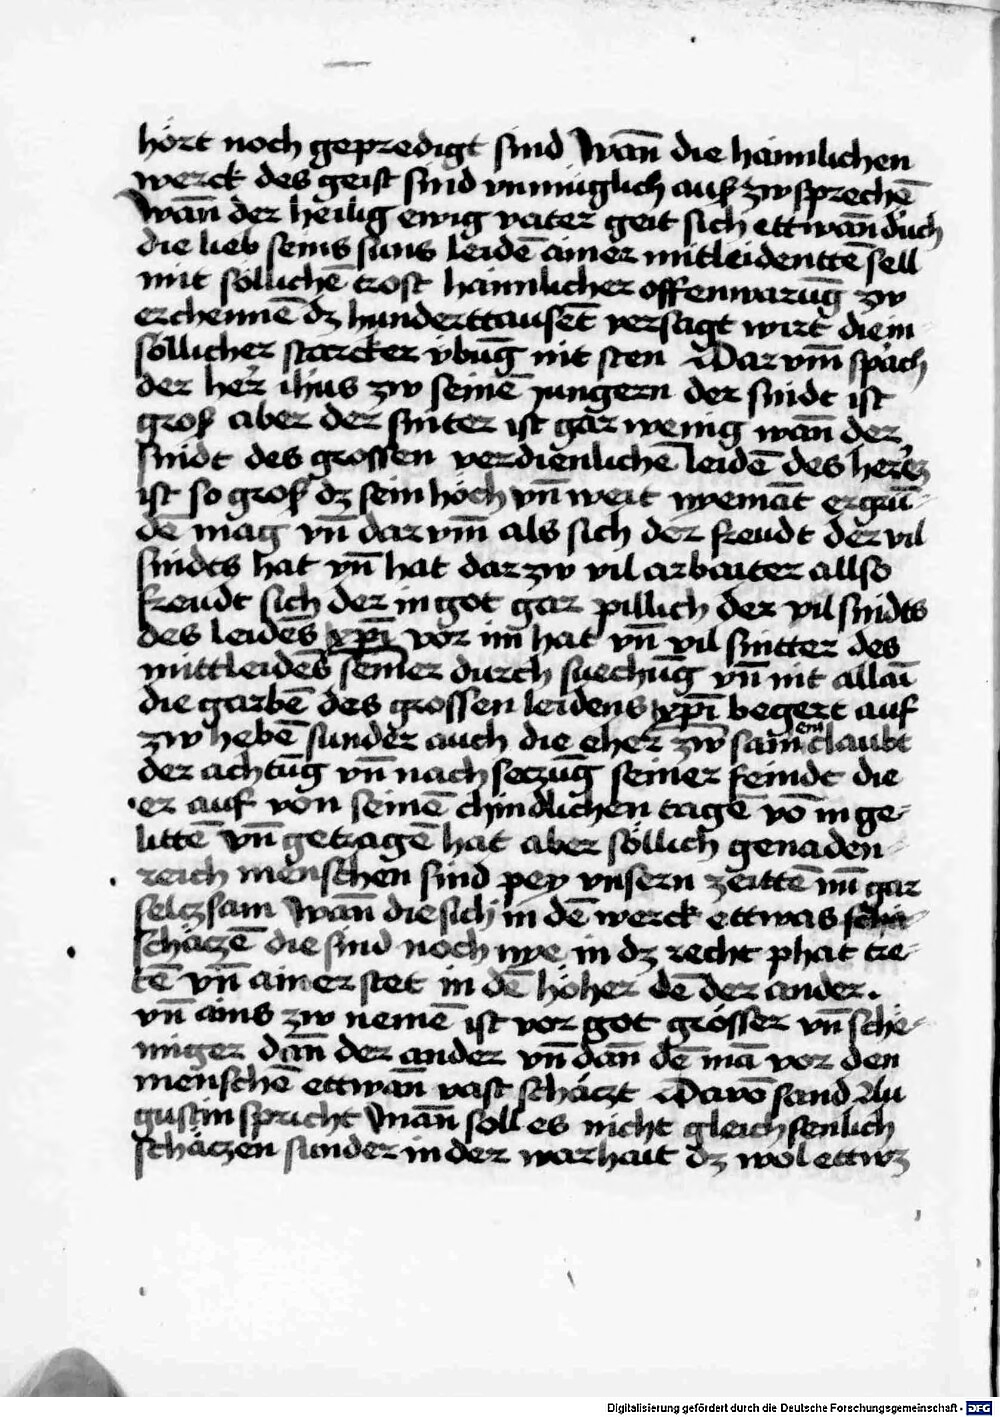 hört noch gepredigt sind Wān die haimlichen
werck des geist sind vnmüglich auß zw sprechē
Wān der heilig ewig vater geit sich ettwān duͤch
die lieb seins suns leidē ainer mitleidenttē sell
mit söllichē trost haimlicher offenwarūg zw
erchennē dz hunderttausēt versagt wirt die in
söllicher starcker vbūg nit sten Dar vm̄ spach
der her ihūs zw seinē jungern der snidt ist
groß aber der sniter ist gar wenig wān der
snidt des grossen verdienlichē leidē des herrē
ist so groß dz sein höch vn̄ weit nyemāt ergrū-
dē mag vn̄ dar vm̄ als sich der freudt der vil
snidts hat vn̄ hat dar zw vil arbaiter allso
freudt sich der in got gar pillich der vil snidts
des leidēs xp̄i vor im̄ hat vn̄ vil snitter des
mittleidēs seiner durch suechūg vn̄ nit allaī
die garbē des grossen leidens xp̄i begert auf
zw hebē sunder auch die eher zw samen claubt
der achtūg vn̄ nach seczūg seiner feindt die
er auf von seinē chindlichen tagē vō in ge-
littē vn̄ getragē hat aber söllich genaden-
reich menschen sind pey vnsern zeittē nu gar
selczsam Wān die sich in dē werck ettwas scha-
schäczē die sind noch nye in dz recht phat tre-
tē vn̄ ainer stet in dē höher dē der ander.
vn̄ ains zw nemē ist vor got grösser vn̄ schei-
niger dān der ander vn̄ dān dē mā vor den
menschē ettwān vast schäczt Davō sand Au
gustin spricht Man̄ soll es nicht gleichsenlich
schäczen sunder in der warhait dz wol ettwz
Digitalisierung gefördert durch die Deutsche Forschungsgemeinschaft - DFG